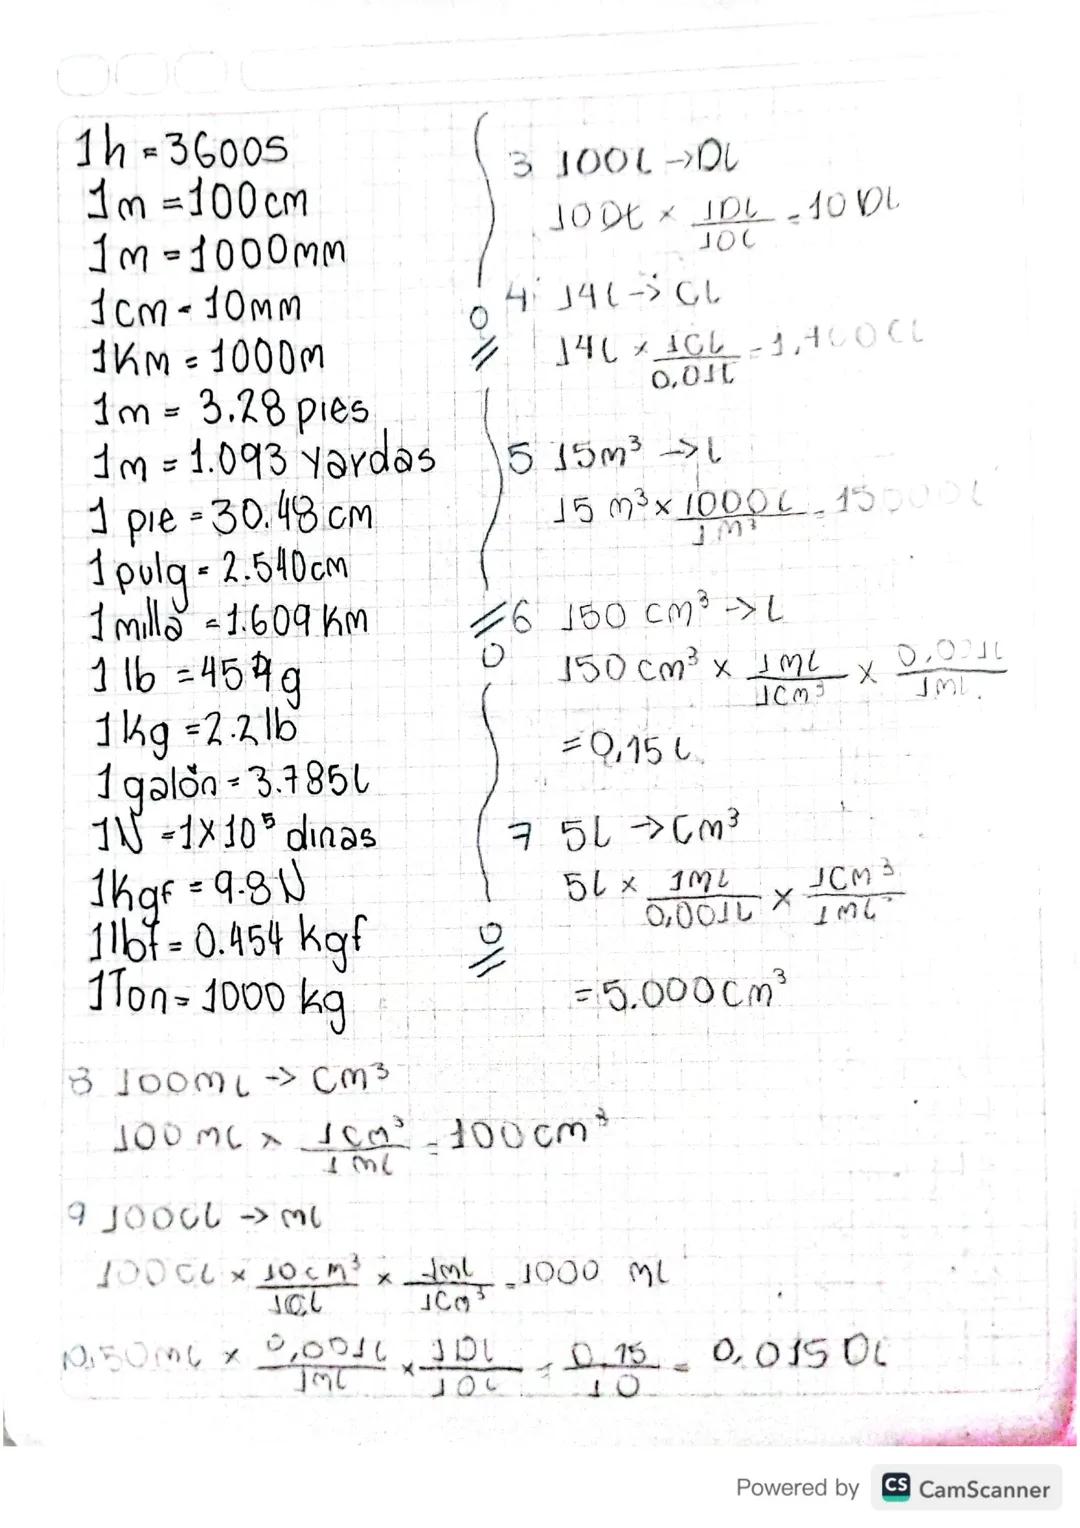 1h = 3600s
1m = 100cm
1m = 1000mm
1cm = 10mm
1Km = 1000m
1m = 3.28 pies
1m = 1.093 yardas
1 pie = 30.48 cm
1 pulg = 2.540cm
1 milla = 1.609 Km
1 lb = 454g
1 kg = 2.2 lb
1 galón = 3.785L
1N = 1x10⁵ dinas
1kgf = 9.8N
1lbf = 0.454 kgf
1Ton = 1000 kg
3 100L -> DL
100L x 1DL/10L = 10 DL
4 14L -> CL
14L x 1CL/0,01L = 1,400CL
5 15m³ -> L
15 m³ x 1000L/1m³ = 15000L
6 150 cm³ -> L
150 cm³ x 1ML/1cm³ x 0,001L/1ML.
= 0,15 L
7 5L -> Cm³
5L x 1ML/0,001L x 1CM³/1ML
= 5.000Cm³
8 100mL -> Cm³
100 mL x 1cm³/1mL = 100cm³
9 100CL -> mL
100CL x 10cm³/1CL x 1mL/1Cm³ = 1000 mL
150mL x 0,001L/1mL x 1DL/10L = 0.15/10 = 0,015 DL
Powered by CS CamScanner